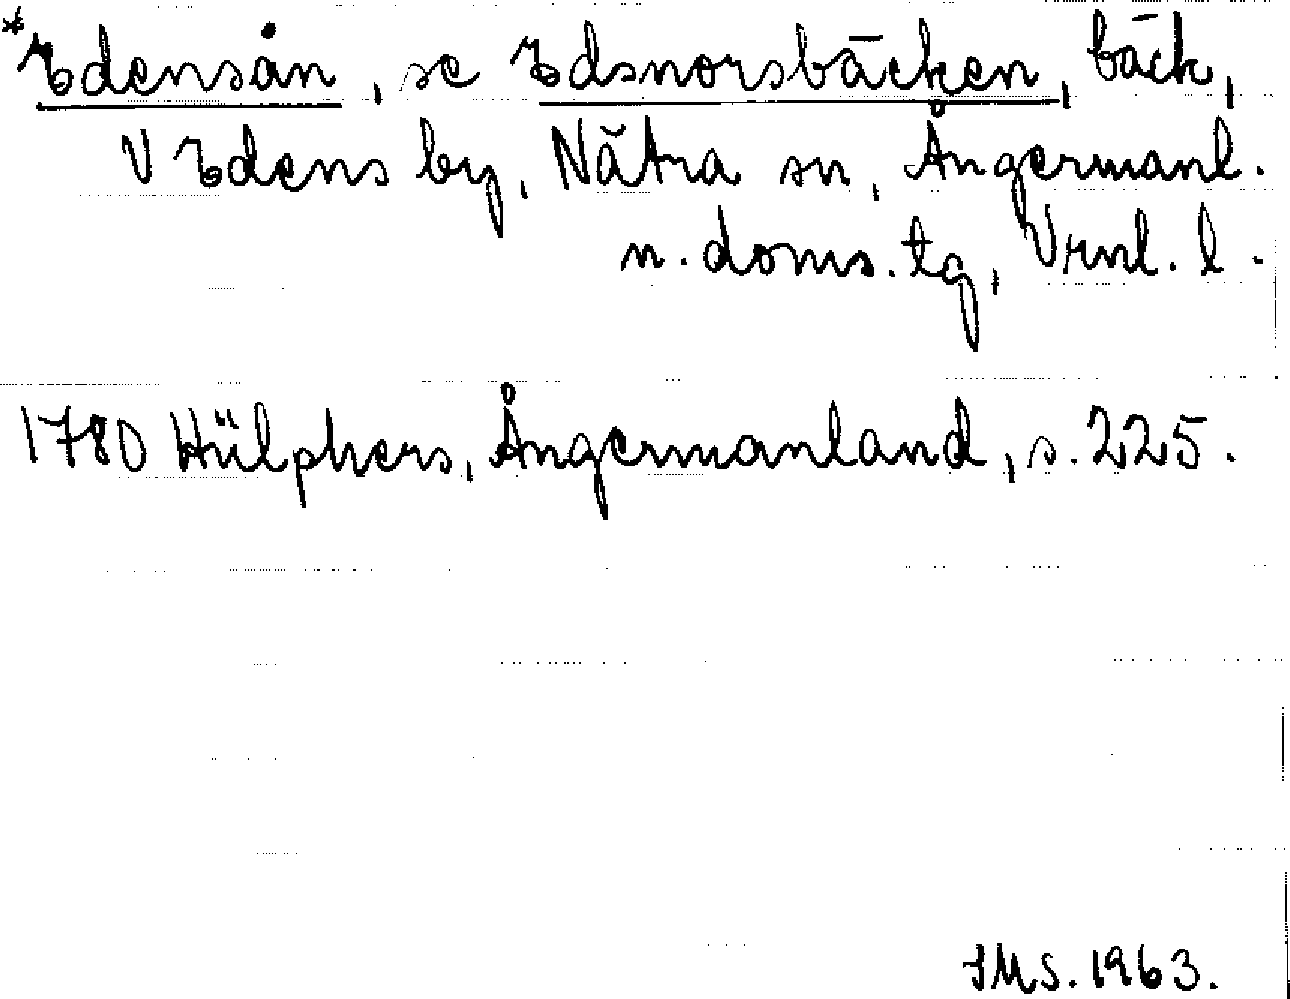 *Edensån, se Edsnorsbäcken, bäck,
V Edens by, Nätra sn, Ångermanl.
n. doms. tg, Vrnl. l.
1780 Hülphers, Ångermanland, s. 225.
IMS. 1963.